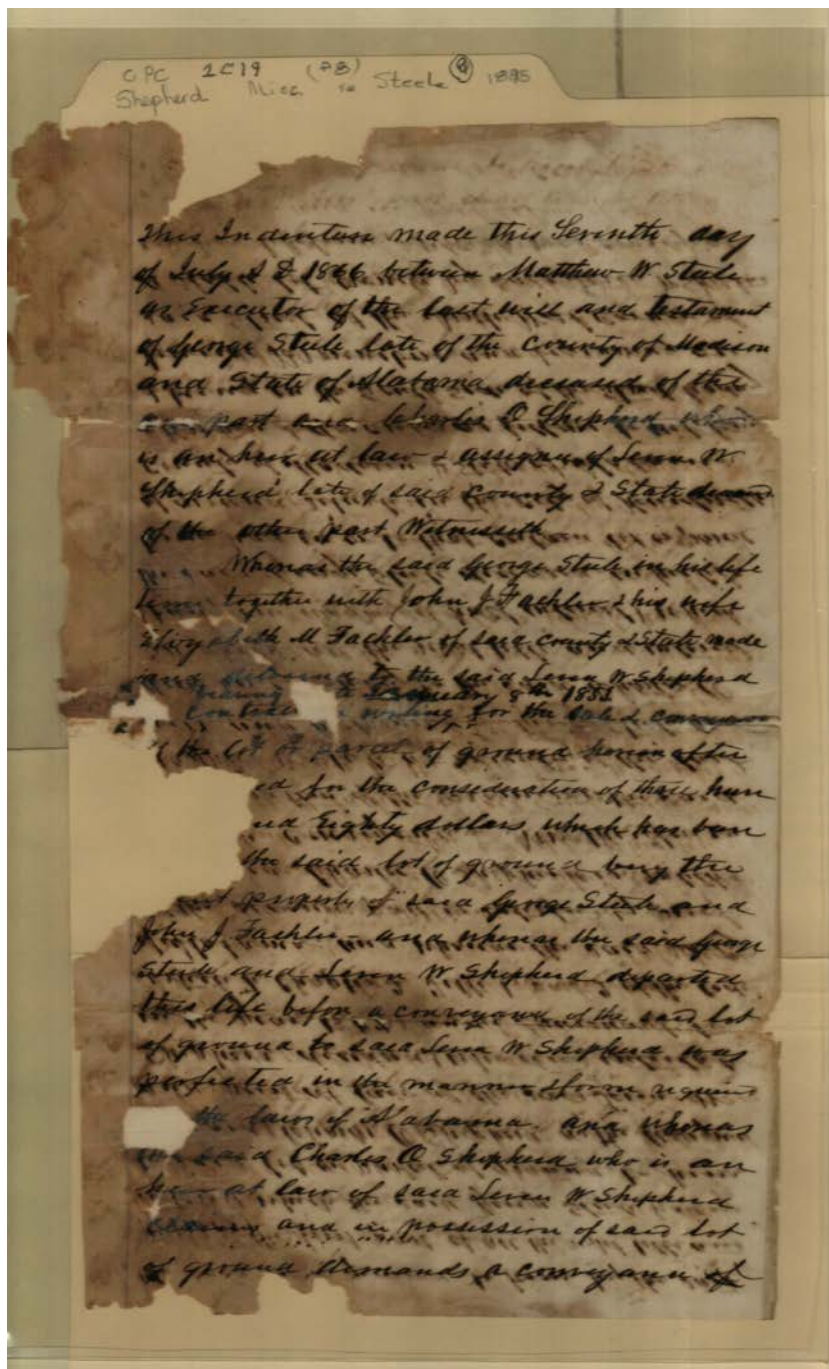 CPC 2C19 (28)
Shepherd Misc. to Steele 1885
This Indenture made this Seventh day
of July A D 1866 between Matthew W Steele
as Executor of the last will and testament
of George Steele late of the County of Madison
and State of Alabama deceased of the
one part and Charles O Shepherd who
is an heir at law & assignee of Leven W
Shepherd late of said County & State deceased
of the other part Witnesseth
Whereas the said George Steele in his life
time together with John J Fackler & his wife
Elizabeth M Fackler of said County & State made
and delivered to the said Leven W Shepherd
bearing date January 8th 1853
Contract in writing for the sale & conveyance
of the lot or parcel of ground herein after
ed for the consideration of three hun
ed Eighty dollars, which has been
the said lot of ground being the
property of said George Steele and
John J. Fackler and whereas the said George
Steele and Leven W Shepherd departed
this life before a conveyance of the said lot
of ground to said Leven W Shepherd was
perfected in the manner & form required
the laws of Alabama. and whereas
the said Charles O Shepherd who is an
heir at law of said Leven W Shepherd
and in possession of said lot
of ground demands a conveyance of